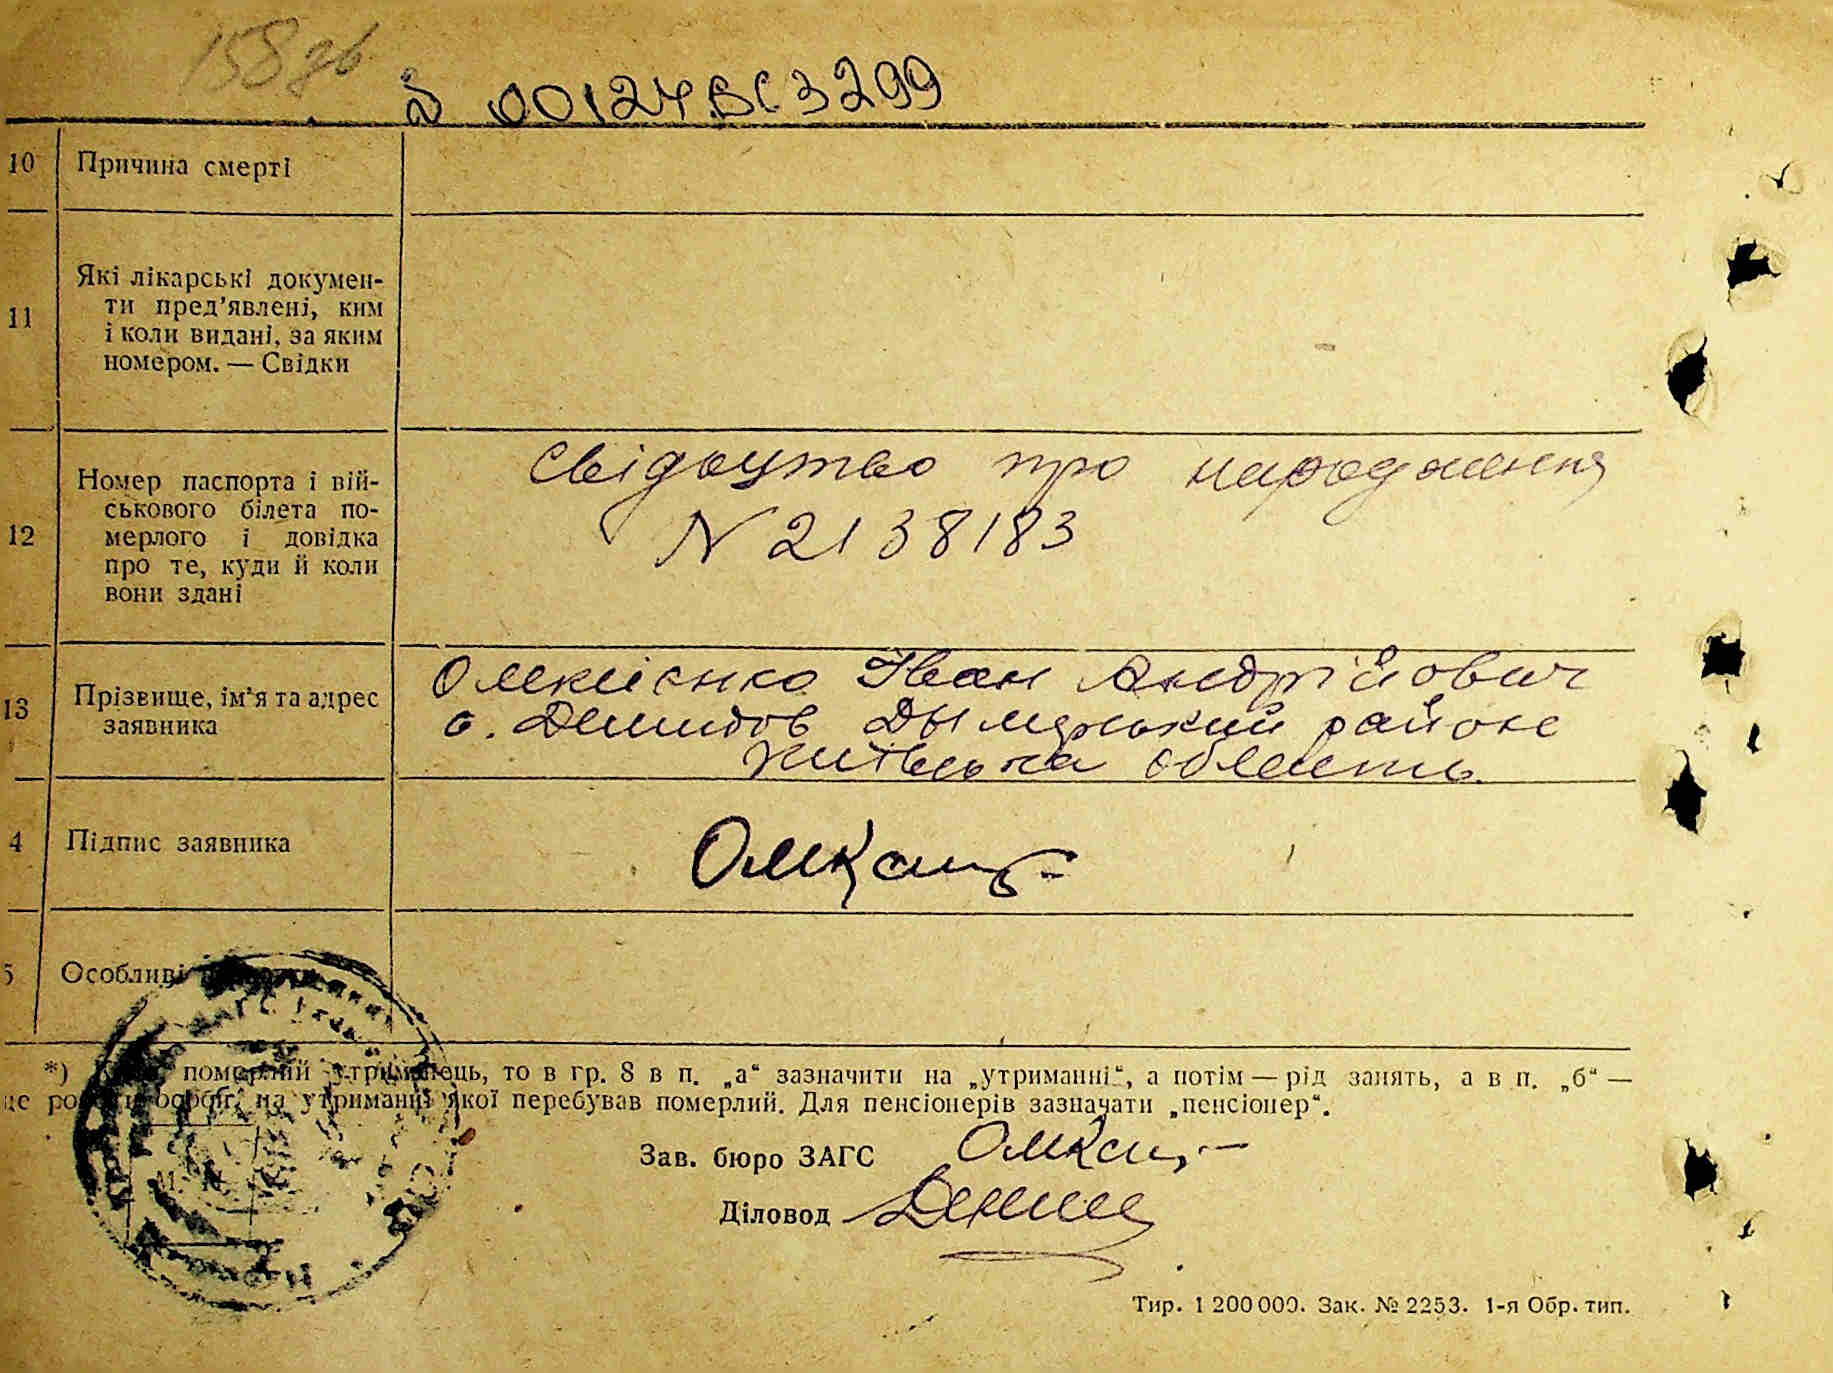 158 зв
00124 ВС 3299
10 Причина смерті
11 Які лікарські докумен-
ти пред’явлені, ким
і коли видані, за яким
номером. — Свідки
12 Номер паспорта і вій-
ськового білета по-
мерлого і довідка
про те, куди й коли
вони здані
Свідоцтво про народження
N 2138183
13 Прізвище, ім’я та адрес
заявника
Іван Андрійович
с. Демидов Дымерський районе
Київська область
4 Підпис заявника
5 Особливі
*) померлий утриманець, то в гр. 8 в п. „а“ зазначити на „утриманні“, а потім — рід занять, а в п. „б“ —
це на утриманні якої перебував померлий. Для пенсіонерів зазначати „пенсіонер“.
Зав. бюро ЗАГС
Діловод
Тир. 1 200 000. Зак. № 2253. 1-я Обр. тип.